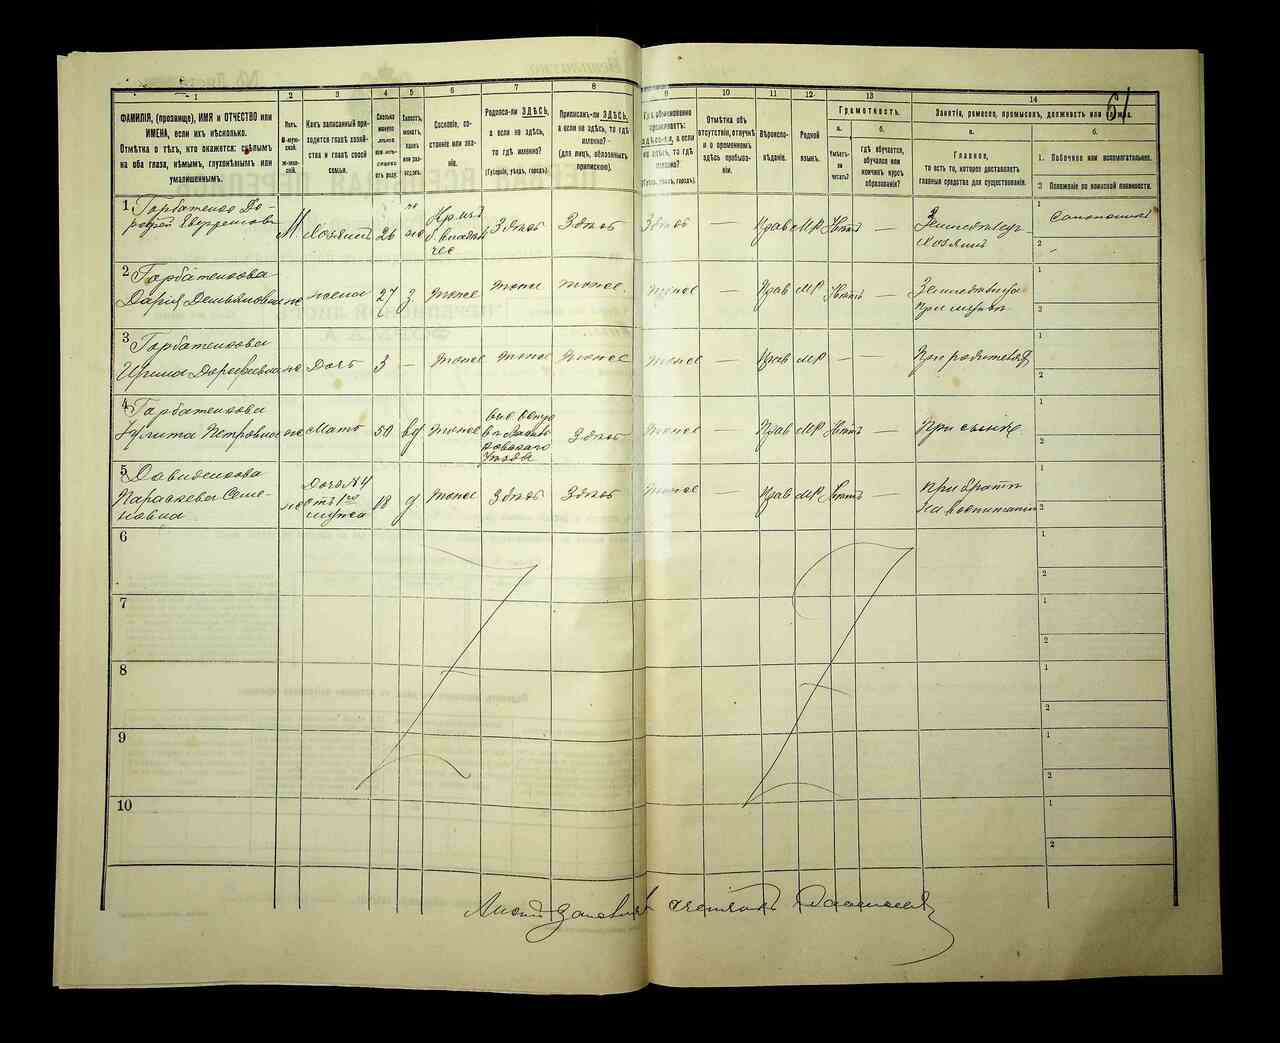 61
1
2
3
4
5
6
7
8
9
10
11
12
13
14
ФАМИЛІЯ, (прозвище), ИМЯ и ОТЧЕСТВО или
ИМЕНА, если ихъ нѣсколько.
Отмѣтка о тѣхъ, кто окажется: слѣпымъ
на оба глаза, нѣмымъ, глухонѣмымъ или
умалишеннымъ.
Полъ.
М-мужской.
Ж-женскій.
Какъ записанный приходится главѣ хозяйства и главѣ своей семьи.
Сколько минуло лѣтъ или мѣсяцевъ отъ роду.
Холостъ, женатъ, вдовъ или разведенъ.
Сословіе, состояніе или званіе.
Родился-ли ЗДѢСЬ,
а если не здѣсь,
то гдѣ именно?
(Губернія, уѣздъ, городъ)
Приписанъ-ли ЗДѢСЬ,
а если не здѣсь, то гдѣ
именно?
(для лицъ, обязанныхъ
припискою).
Гдѣ обыкновенно
проживаетъ:
здѣсь-ли, а если
не здѣсь, то гдѣ
именно?
(Губер., уѣздъ, городъ).
Отмѣтка объ
отсутствіи, отлучкѣ
и о временномъ
здѣсь пребываніи.
Вѣроисповѣданіе.
Родной
языкъ.
Грамотность.
а.
б.
Умѣетъ-ли
читать?
гдѣ обучается,
обучался или
кончилъ курсъ
образованія?
Занятіе, ремесло, промыселъ, должность или служба.
а.
б.
Главное,
то есть то, которое доставляетъ
главныя средства для существованія.
1. Побочное или вспомогательное.
2 Положеніе по воинской повинности.
1 Горбатенко До-
рофей
М
Хозяинъ
26
ж
Здѣсь
Здѣсь
Здѣсь
—
Прав
МР
Нѣтъ
—
Земледѣлец
Хозяинъ
1
2
2 Горбатенкова
Дарія Демьяновна
ж
жена
27
З.
тоже
тоже
тоже
тоже
—
Прав
МР
Нѣтъ
—
при мужѣ
1
2
3 Горбатенкова
Ирина Дорофеевна
ж
Дочь
3
—
тоже
тоже
тоже
тоже
—
Прав
МР
—
—
При родителях
1
2
4 Горбатенкова
Улита Петровна
ж
Мать
50
вд
тоже
Здѣсь
тоже
—
Прав
МР
Нѣтъ
—
При сынѣ
1
2
5 Давиденкова
Параскева Семе-
новна
ж
Дочь №4
отъ 1го
мужа
18
д
тоже
Здѣсь
Здѣсь
тоже
—
Прав
МР
Нѣтъ
—
при братѣ
на воспитаніи
1
2
6
1
2
7
1
2
8
1
2
9
1
2
10
1
2